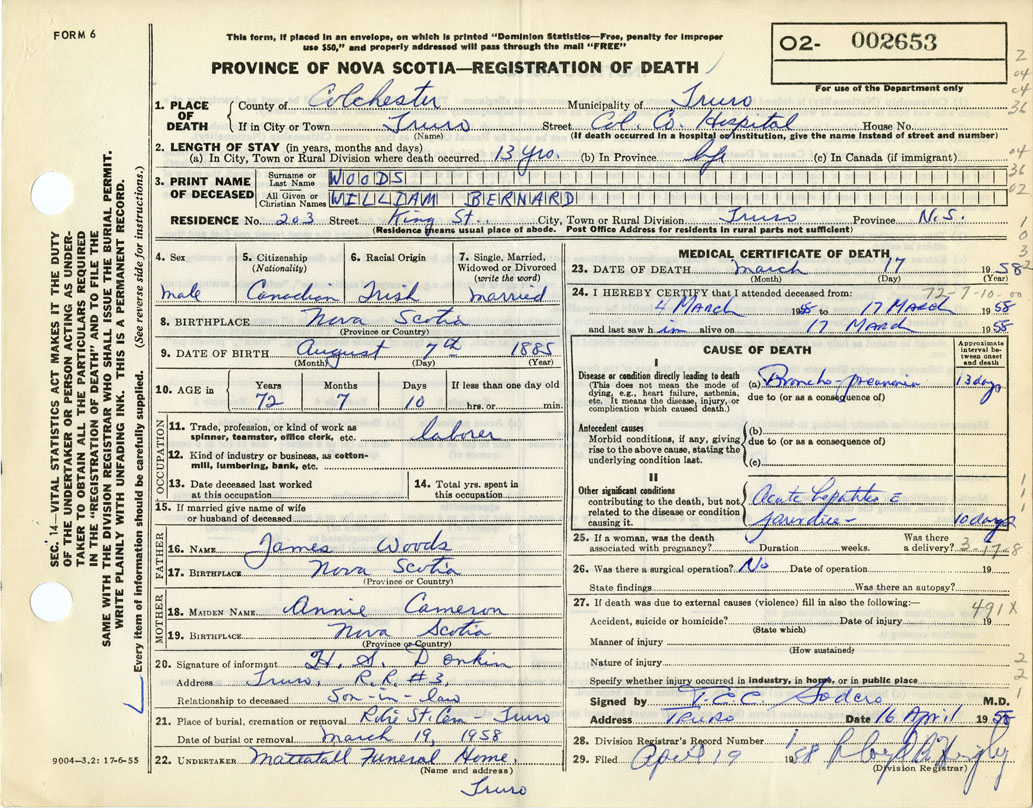 FORM 6
This form, if placed in an envelope, on which is printed "Dominion Statistics—Free, penalty for improper
use $50," and properly addressed will pass through the mail "FREE"
O2- 002653
For use of the Department only
PROVINCE OF NOVA SCOTIA—REGISTRATION OF DEATH
1. PLACE OF DEATH
County of Colchester Municipality of Truro
If in City or Town Truro Street Col. Co. Hospital House No.
(Name) (If death occurred in a hospital or institution, give the name instead of street and number)
2. LENGTH OF STAY (in years, months and days)
(a) In City, Town or Rural Division where death occurred 13 yrs. (b) In Province life (c) In Canada (if immigrant)
3. PRINT NAME OF DECEASED
Surname or Last Name WOODS
All Given or Christian Names WILLIAM BERNARD
RESIDENCE No. 203 Street King St. City, Town or Rural Division Truro Province N.S.
(Residence means usual place of abode. Post Office Address for residents in rural parts not sufficient)
4. Sex male
5. Citizenship (Nationality) Canadian
6. Racial Origin Irish
7. Single, Married, Widowed or Divorced (write the word) married
8. BIRTHPLACE Nova Scotia
(Province or Country)
9. DATE OF BIRTH August 7th 1885
(Month) (Day) (Year)
10. AGE in Years 72 Months 7 Days 10 If less than one day old hrs. or min.
OCCUPATION
11. Trade, profession, or kind of work as spinner, teamster, office clerk, etc. laborer
12. Kind of industry or business, as cotton-mill, lumbering, bank, etc.
13. Date deceased last worked at this occupation
14. Total yrs. spent in this occupation
15. If married give name of wife or husband of deceased
FATHER
16. NAME James Woods
17. BIRTHPLACE Nova Scotia
(Province or Country)
MOTHER
18. MAIDEN NAME Annie Cameron
19. BIRTHPLACE Nova Scotia
(Province or Country)
20. Signature of informant H. S. Donkin
Address Truro, R.R. #3,
Relationship to deceased Son-in-law
21. Place of burial, cremation or removal Robie St. Cem - Truro
Date of burial or removal March 19, 1958
22. UNDERTAKER Mattatall Funeral Home,
(Name and address)
Truro
MEDICAL CERTIFICATE OF DEATH
23. DATE OF DEATH March 17 1958
(Month) (Day) (Year)
72-7-10
24. I HEREBY CERTIFY that I attended deceased from:
4 March 1958 to 17 March 1958
and last saw him alive on 17 March 1958
CAUSE OF DEATH
Approximate interval between onset and death
I
Disease or condition directly leading to death
(This does not mean the mode of dying, e.g., heart failure, asthenia, etc. It means the disease, injury, or complication which caused death.)
(a) Broncho-pneumonia 13 days
due to (or as a consequence of)
Antecedent causes
Morbid conditions, if any, giving rise to the above cause, stating the underlying condition last.
(b)
due to (or as a consequence of)
(c)
II
Other significant conditions
contributing to the death, but not related to the disease or condition causing it.
Acute hepatitis c
jaundice - 10 days
25. If a woman, was the death associated with pregnancy? Duration weeks. Was there a delivery? 3-17-8
26. Was there a surgical operation? No Date of operation 19
State findings Was there an autopsy?
27. If death was due to external causes (violence) fill in also the following:—
491X
Accident, suicide or homicide? Date of injury 19
(State which)
Manner of injury
(How sustained)
Nature of injury
Specify whether injury occurred in industry, in home, or in public place
Signed by T.C.C. Sodero M.D.
Address TRURO Date 16 April 1958
28. Division Registrar's Record Number 1
29. Filed April 19 1958
(Division Registrar)
SEC. 14—VITAL STATISTICS ACT MAKES IT THE DUTY
OF THE UNDERTAKER OR PERSON ACTING AS UNDER-
TAKER TO OBTAIN ALL THE PARTICULARS REQUIRED
IN THE "REGISTRATION OF DEATH" AND TO FILE THE
SAME WITH THE DIVISION REGISTRAR WHO SHALL ISSUE THE BURIAL PERMIT.
WRITE PLAINLY WITH UNFADING INK. THIS IS A PERMANENT RECORD.
Every item of information should be carefully supplied. (See reverse side for instructions.)
9004—3.2: 17-6-55